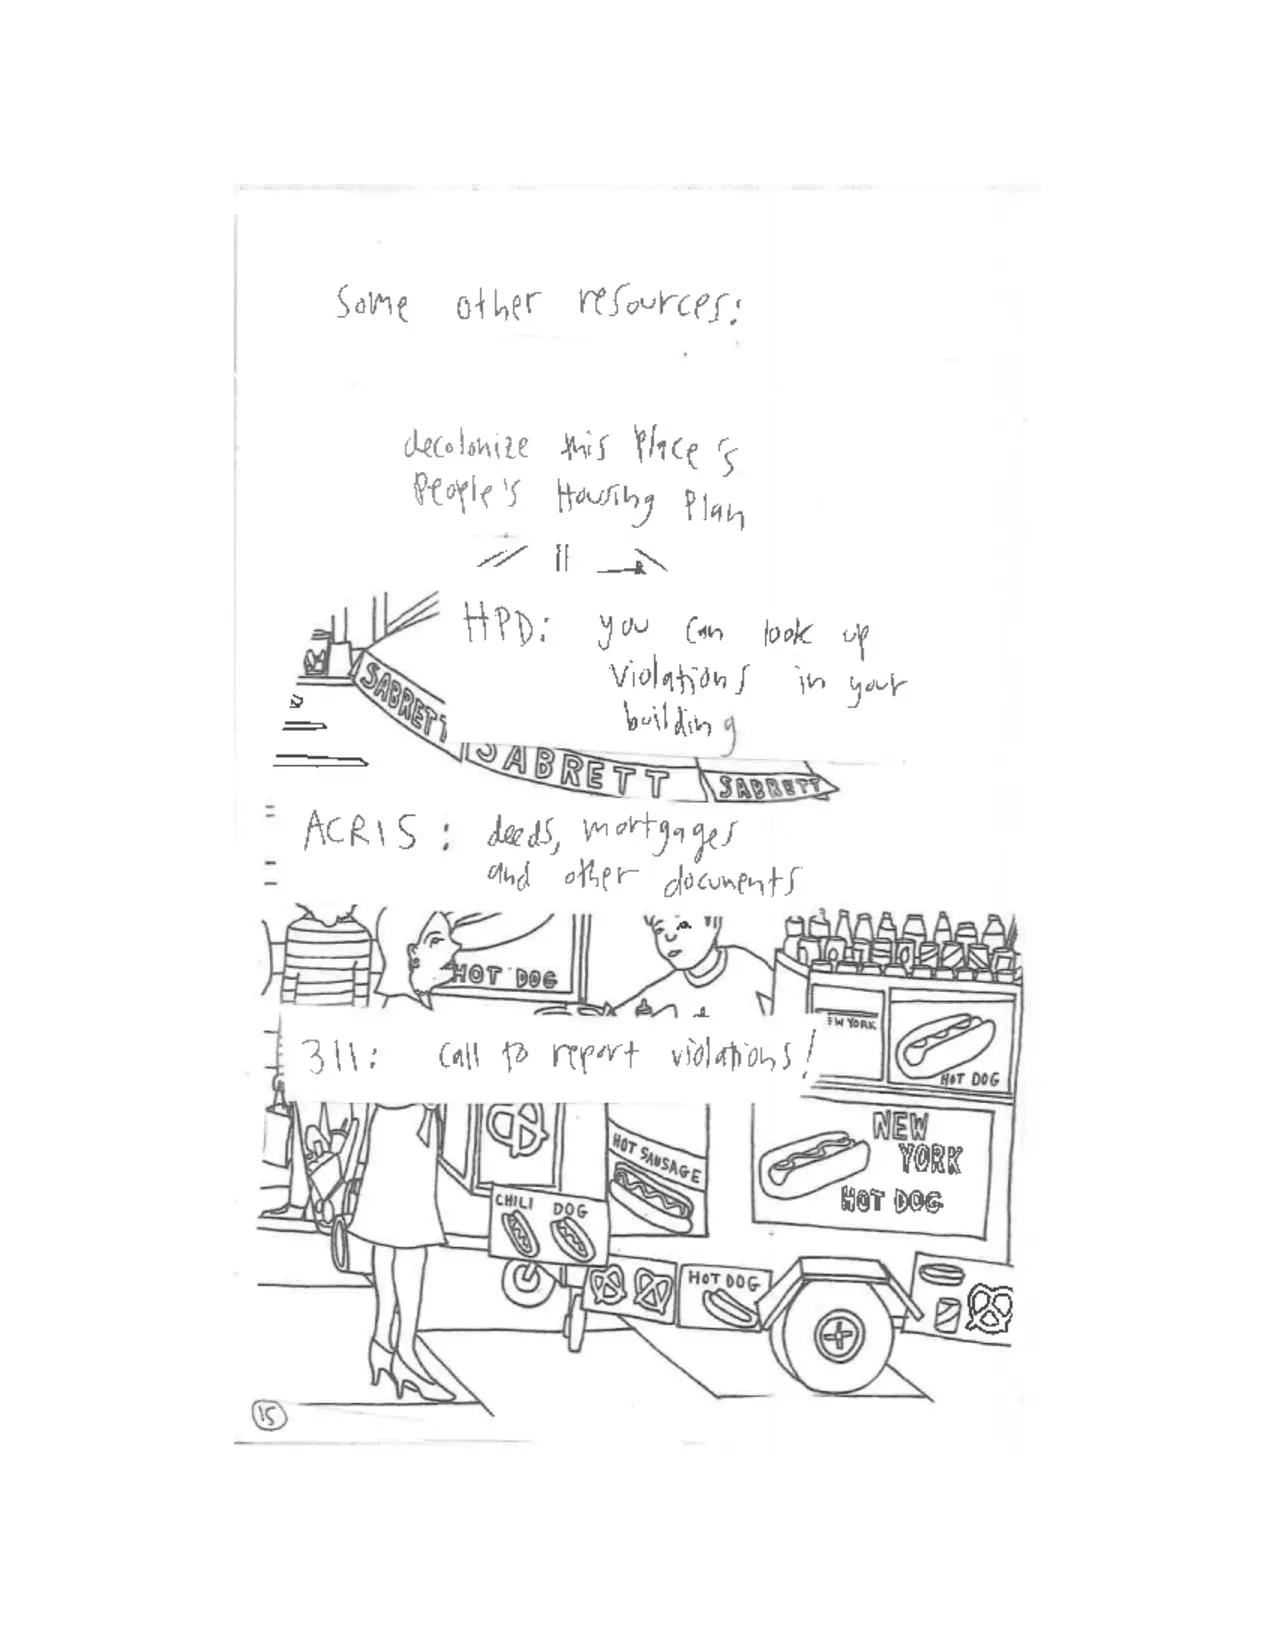 Some other resources:
decolonize this Place's
People's Housing Plan
HPD: you can look up
violations in your
building
SABRETT
SABRETT
SABRETT
ACRIS: deeds, mortgages
and other documents
HOT DOG
EW YORK
HOT DOG
311: Call to report violations!
NEW
YORK
HOT DOG
HOT SAUSAGE
CHILI DOG
HOT DOG
15